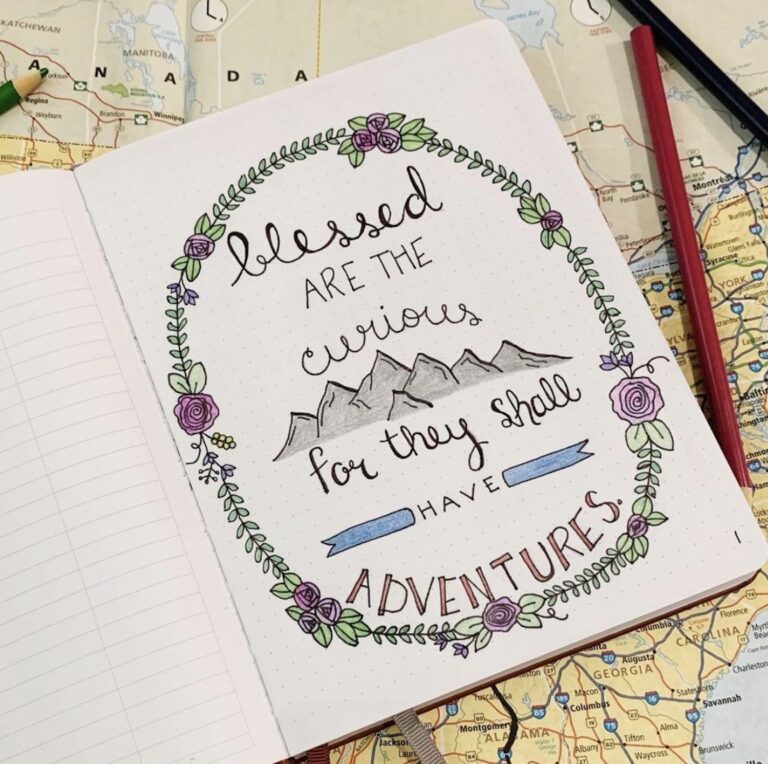 blessed
ARE THE
curious
for they shall
HAVE
ADVENTURES.
1
SKATCHEWAN
MANITOBA
A N A D A
Regina
Weyburn
Brandon
Winnipe
Williston
James Bay
North Bay
Pembroke
Montréal
Peterborough
Burlington
Watertown
Glens Falls
Syracuse
Utica
YORK
Binghamton
Baltim
Florence
CAROLINA
Columbia
Augusta
GEORGIA
Charleston
Macon
Statesboro
Savannah
Columbus
Tuscaloosa
Montgomery
ALABAMA
Albany
Tifton
Alma
Waycross
Brunswick
Jackson